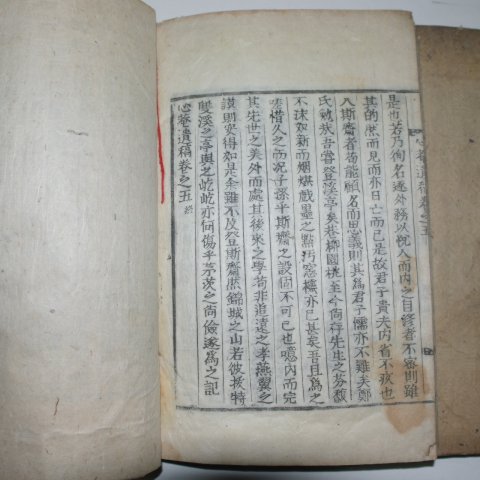 是也若乃徇名逐外務以悅人而內之自修者不密則雖
其的然而見而亦日亡而已是故君子貴夫內省不疚也
入斯齋者苟能顧名而思義則其爲君子儒亦不難矣鄭
氏勉哉吾嘗登溪亭矣巷柳園桃至今尙存先生之芬馥
不沫如新而烟煤戲墨之點汚窓櫳亦已甚矣吾且爲之
嗟惜久之而況子孫乎斯齋之設固不可已也噫內而完
其先世之美外而處其後來之學苟非追遠之孝燕翼之
謨則奚得如是余雖不及登斯齋然錦城之山若彼拔特
雙溪之亭與之屹屹亦何傷乎茅茨之尙儉遂爲之記
心菴遺稿卷之五 終
心菴遺稿卷之五